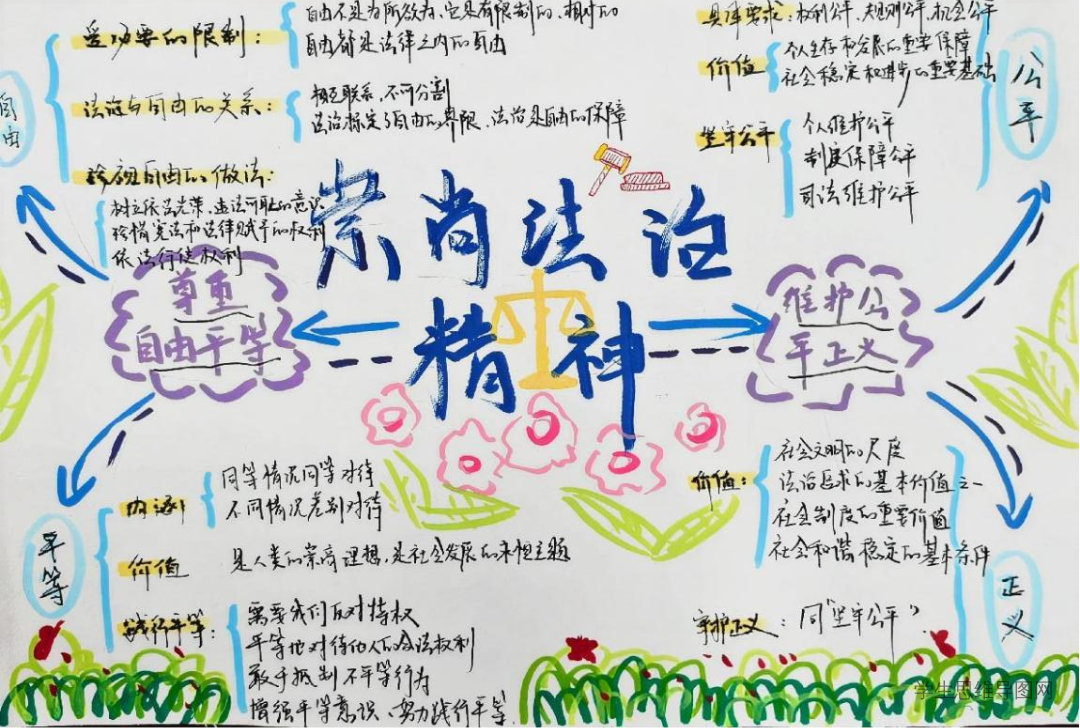 崇尚法治
精神
尊重
自由平等
自由
受必要的限制：
自由不是为所欲为，它是有限制的、相对的
自由都是法律之内的自由
法治与自由的关系：
相互联系，不可分割
法治标定了自由的界限，法治是自由的保障
珍视自由的做法：
珍惜宪法和法律赋予的权利
依法行使权利
平等
内涵
同等情况同等对待
不同情况差别对待
价值
是人类的崇高理想，是社会发展的永恒主题
践行平等：
平等地对待他人的合法权利
敢于抵制不平等行为
增强平等意识、努力践行平等
维护公
平正义
公平
具体要求：权利公平、规则公平、机会公平
价值
个人生存和发展的重要保障
社会稳定和进步的重要基础
坚守公平
个人维护公平
制度保障公平
司法维护公平
正义
价值：
社会文明的尺度
法治追求的基本价值之一
社会制度的重要价值
社会和谐稳定的基本条件
守护正义：同"坚守公平"
学生思维导图网